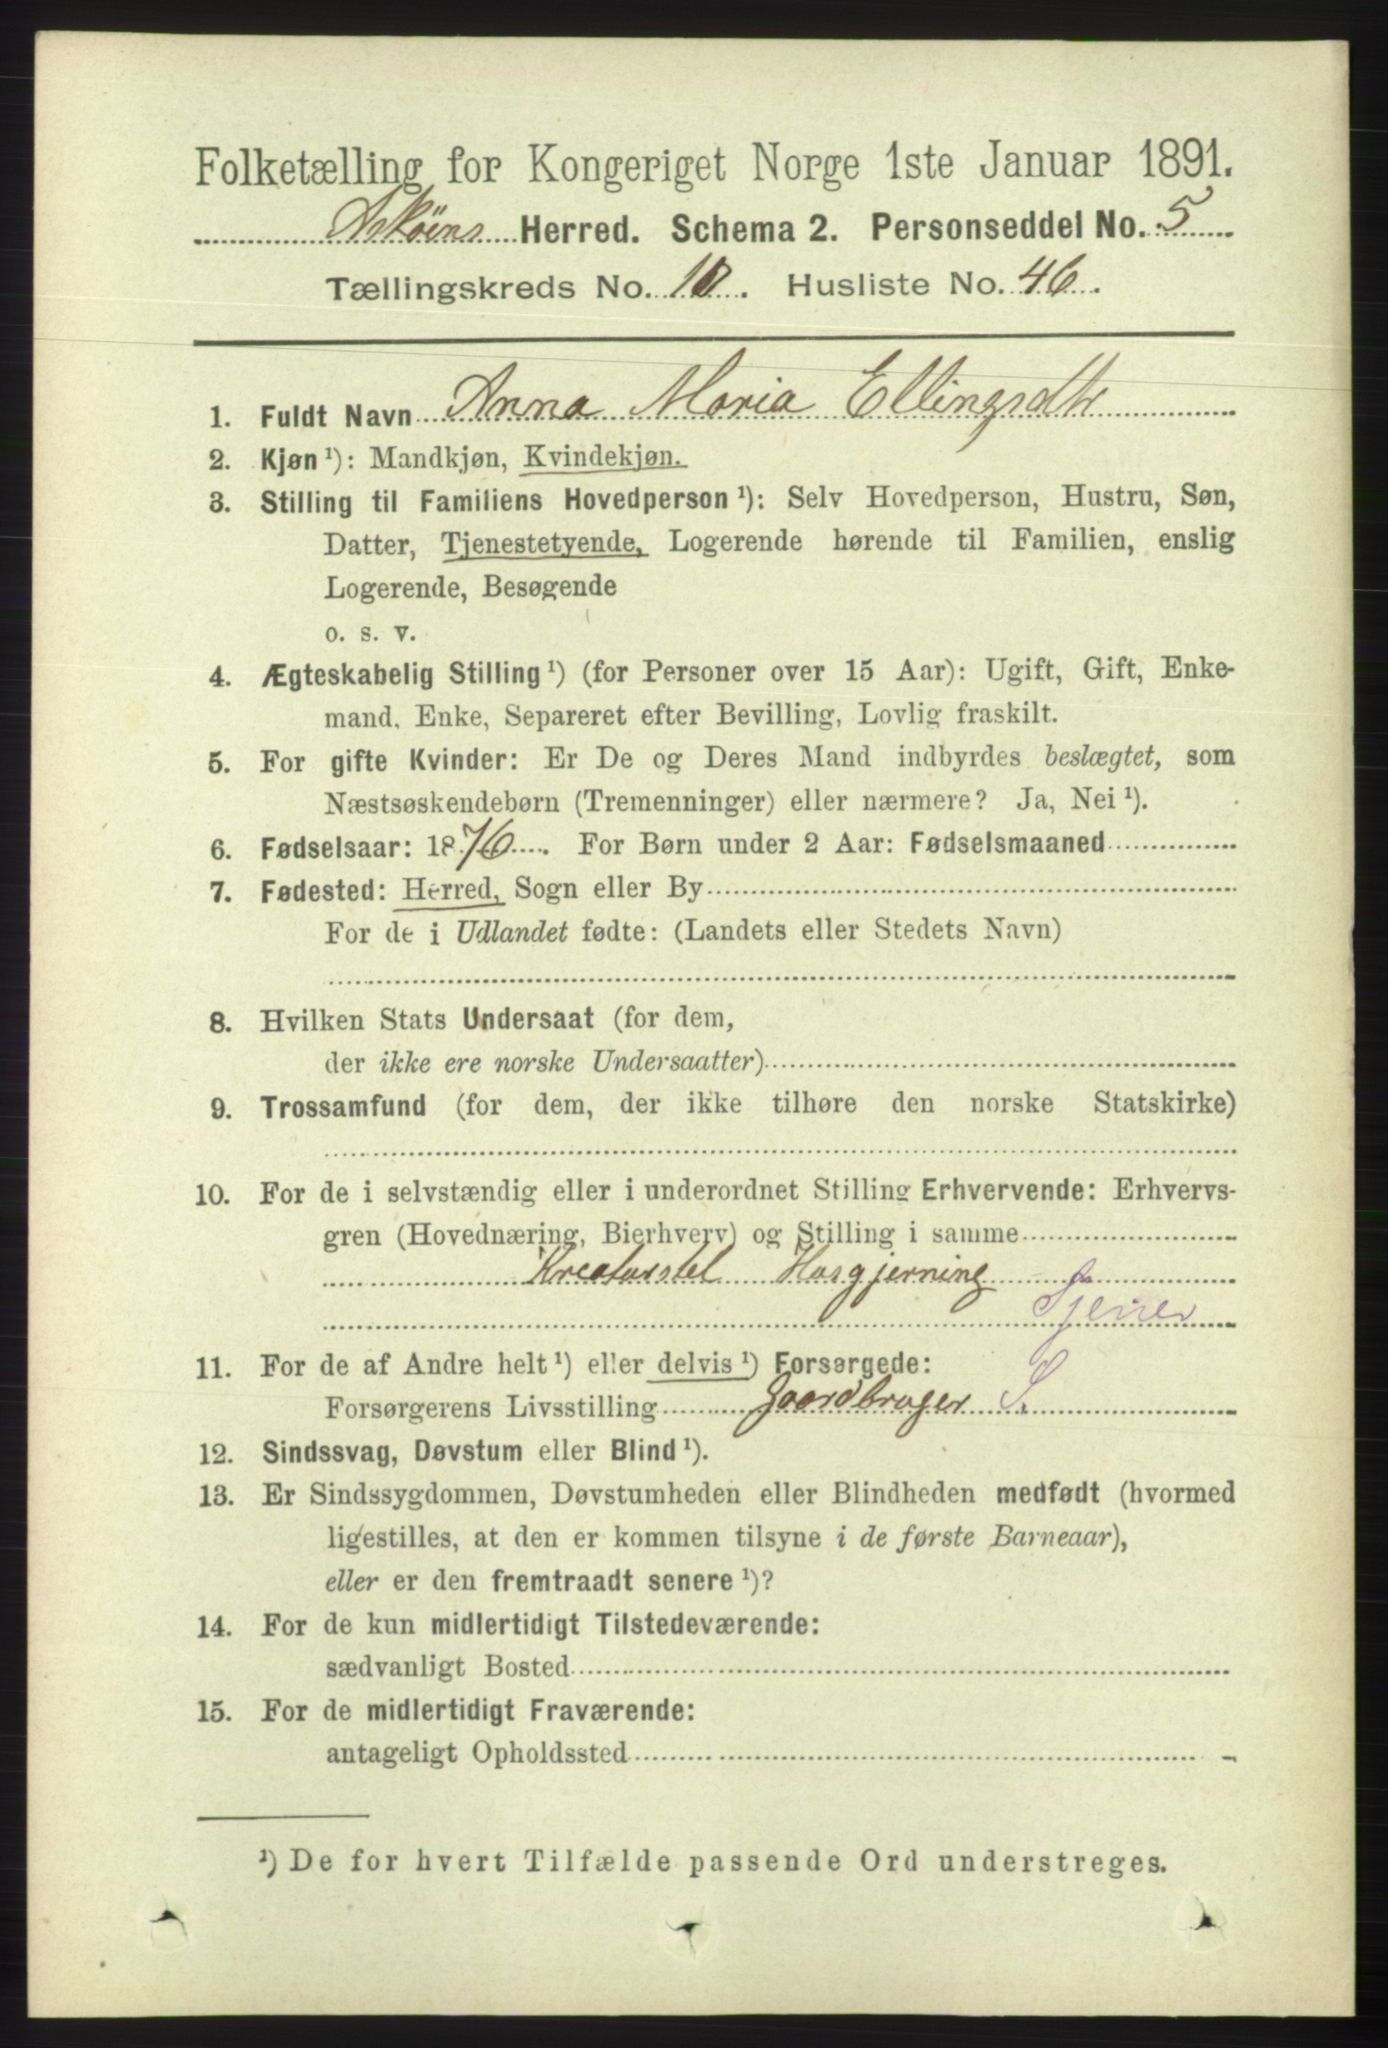 Folketælling for Kongeriget Norge 1ste Januar 1891.
Askøens Herred. Schema 2. Personseddel No. 5
Tællingskreds No. 10. Husliste No. 46.
1. Fuldt Navn Anna Maria Ellingsdtr
2. Kjøn ¹): Mandkjøn, Kvindekjøn.
3. Stilling til Familiens Hovedperson ¹): Selv Hovedperson, Hustru, Søn,
Datter, Tjenestetyende, Logerende hørende til Familien, enslig
Logerende, Besøgende
o. s. v.
4. Ægteskabelig Stilling ¹) (for Personer over 15 Aar): Ugift, Gift, Enke-
mand, Enke, Separeret efter Bevilling, Lovlig fraskilt.
5. For gifte Kvinder: Er De og Deres Mand indbyrdes beslægtet, som
Næstsøskendebørn (Tremenninger) eller nærmere? Ja, Nei ¹).
6. Fødselsaar: 1876. For Børn under 2 Aar: Fødselsmaaned
7. Fødested: Herred, Sogn eller By
For de i Udlandet fødte: (Landets eller Stedets Navn)
8. Hvilken Stats Undersaat (for dem,
der ikke ere norske Undersaatter)
9. Trossamfund (for dem, der ikke tilhøre den norske Statskirke)
10. For de i selvstændig eller i underordnet Stilling Erhvervende: Erhvervs-
gren (Hovednæring, Bierhverv) og Stilling i samme
Kreaturstel Husgjerning
Tjener
11. For de af Andre helt ¹) eller delvis ¹) Forsørgede:
Forsørgerens Livsstilling Gaardbruger S.
12. Sindssvag, Døvstum eller Blind ¹).
13. Er Sindssygdommen, Døvstumheden eller Blindheden medfødt (hvormed
ligestilles, at den er kommen tilsyne i de første Barneaar),
eller er den fremtraadt senere ¹)?
14. For de kun midlertidigt Tilstedeværende:
sædvanligt Bosted
15. For de midlertidigt Fraværende:
antageligt Opholdssted
¹) De for hvert Tilfælde passende Ord understreges.